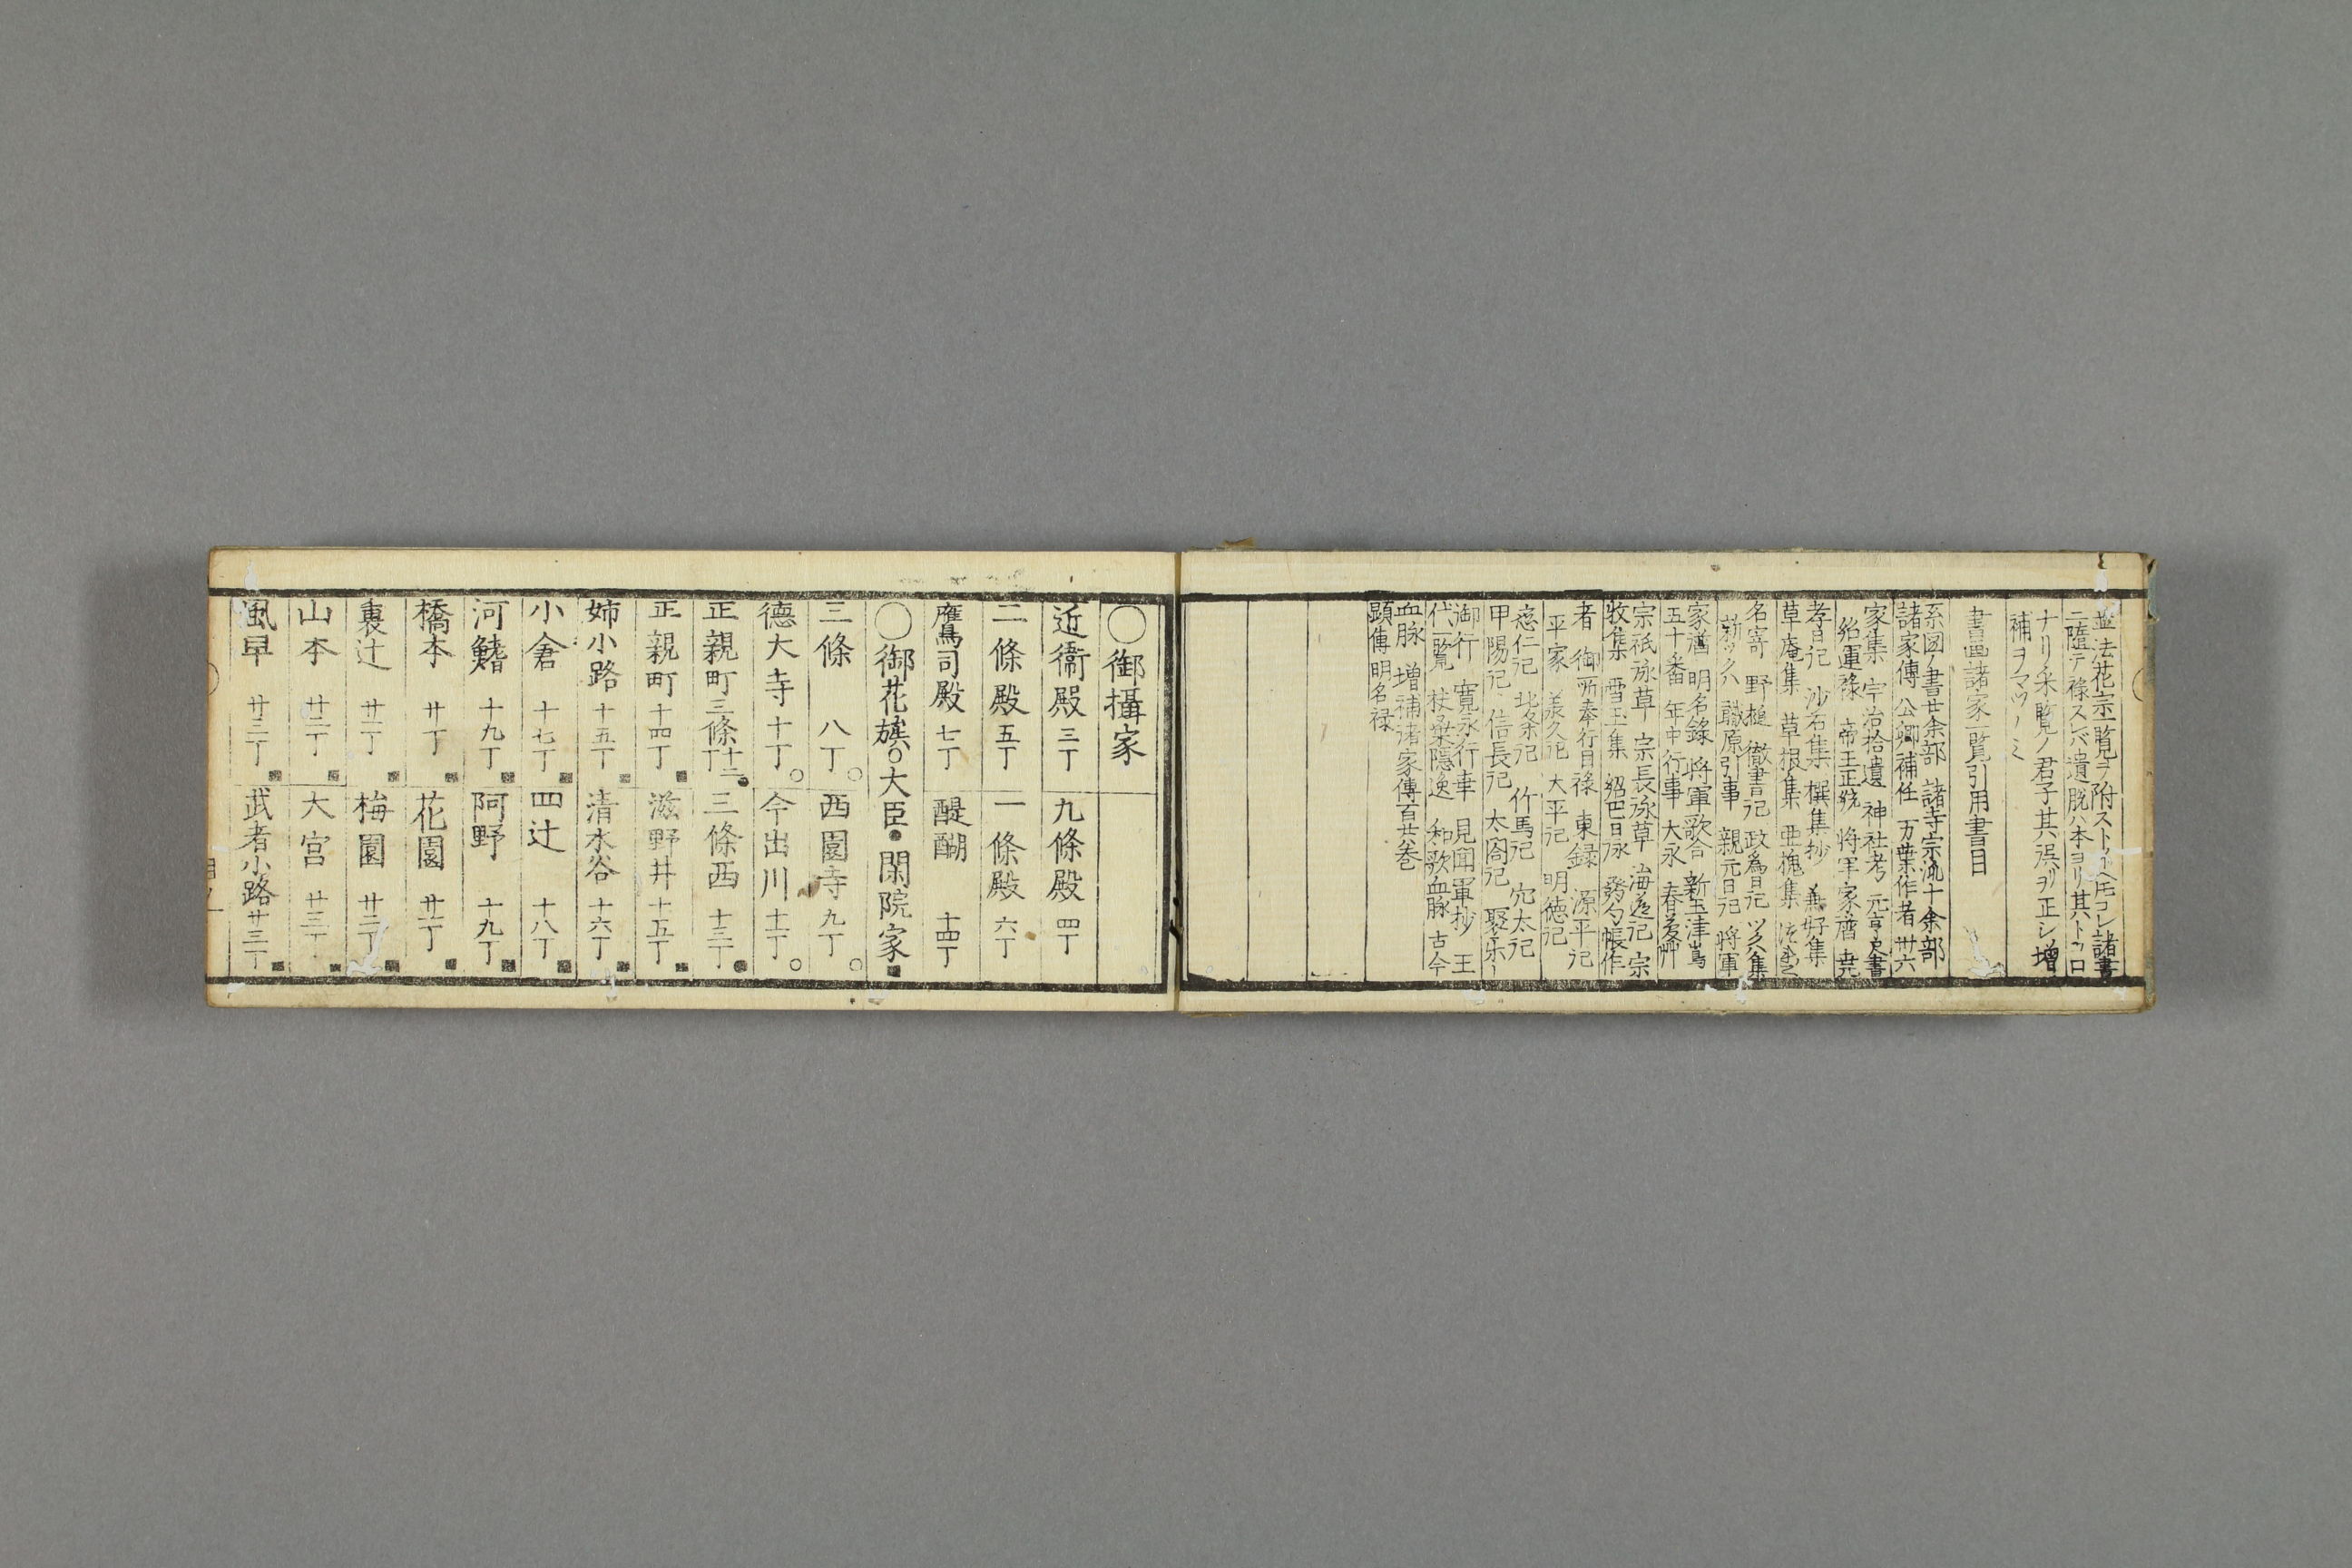 並法花宗一覧ヲ附ストイヘ𪜈コレ諸書
ニ隨テ祿スレバ遺脱ハ本ヨリ其トコロ
ナリ釆覧ノ君子其誤ヲ正シ増
補ヲマツノミ
書畫諸家一覧引用書目
系図ノ書廿余部 諸寺宗派十余部
諸家傳 公卿補任 万葉作者 卅六
家集 宇治拾遺 神社考 元亨釈書
紹運祿 帝王正統 将軍家譜
孝日記 沙石集 撰集抄 兼好集
草庵集 草根集 亜槐集
名寄 野槌 徹書記 政為日記
職原引事 親元日記 将軍
家譜 明名錄 将軍歌合 新玉津嶋
五十番 年中行事 大永
宗祇詠草 宗長詠草 海道記 宗
牧集 雪玉集 紹巴日次 帳作
者 御所奉行目祿 東録 源平記
平家 承久記 大平記 明徳記
応仁記 北条記 竹馬記 穴太記
甲陽記 信長記 太閤記 聚乐
御行 寛永行幸 見聞軍抄 王
代一覧 扶桑隠逸 和歌血脉 古今
血脉 増補諸家傳百廿巻
顕傳明名禄
〇御攝家
近衞殿 三丁 九條殿 四丁
二條殿 五丁 一條殿 六丁
鷹司殿 七丁 醍醐 十四丁
〇御花族〇大臣●閑院家■
三條 八丁〇 西園寺 九丁〇
德大寺 十丁〇 今出川 十一丁〇
正親町三條 十二丁● 三條西 十三丁●
正親町 十四丁■ 滋野井 十五丁■
姉小路 十五丁■ 清水谷 十六丁■
小倉 十七丁■ 四辻 十八丁■
河鰭 十九丁■ 阿野 十九丁■
橋本 廿丁■ 花園 廿一丁■
裏辻 廿一丁■ 梅園 廿二丁■
山本 廿二丁■ 大宮 廿三丁■
風早 廿三丁■ 武者小路 廿三丁■